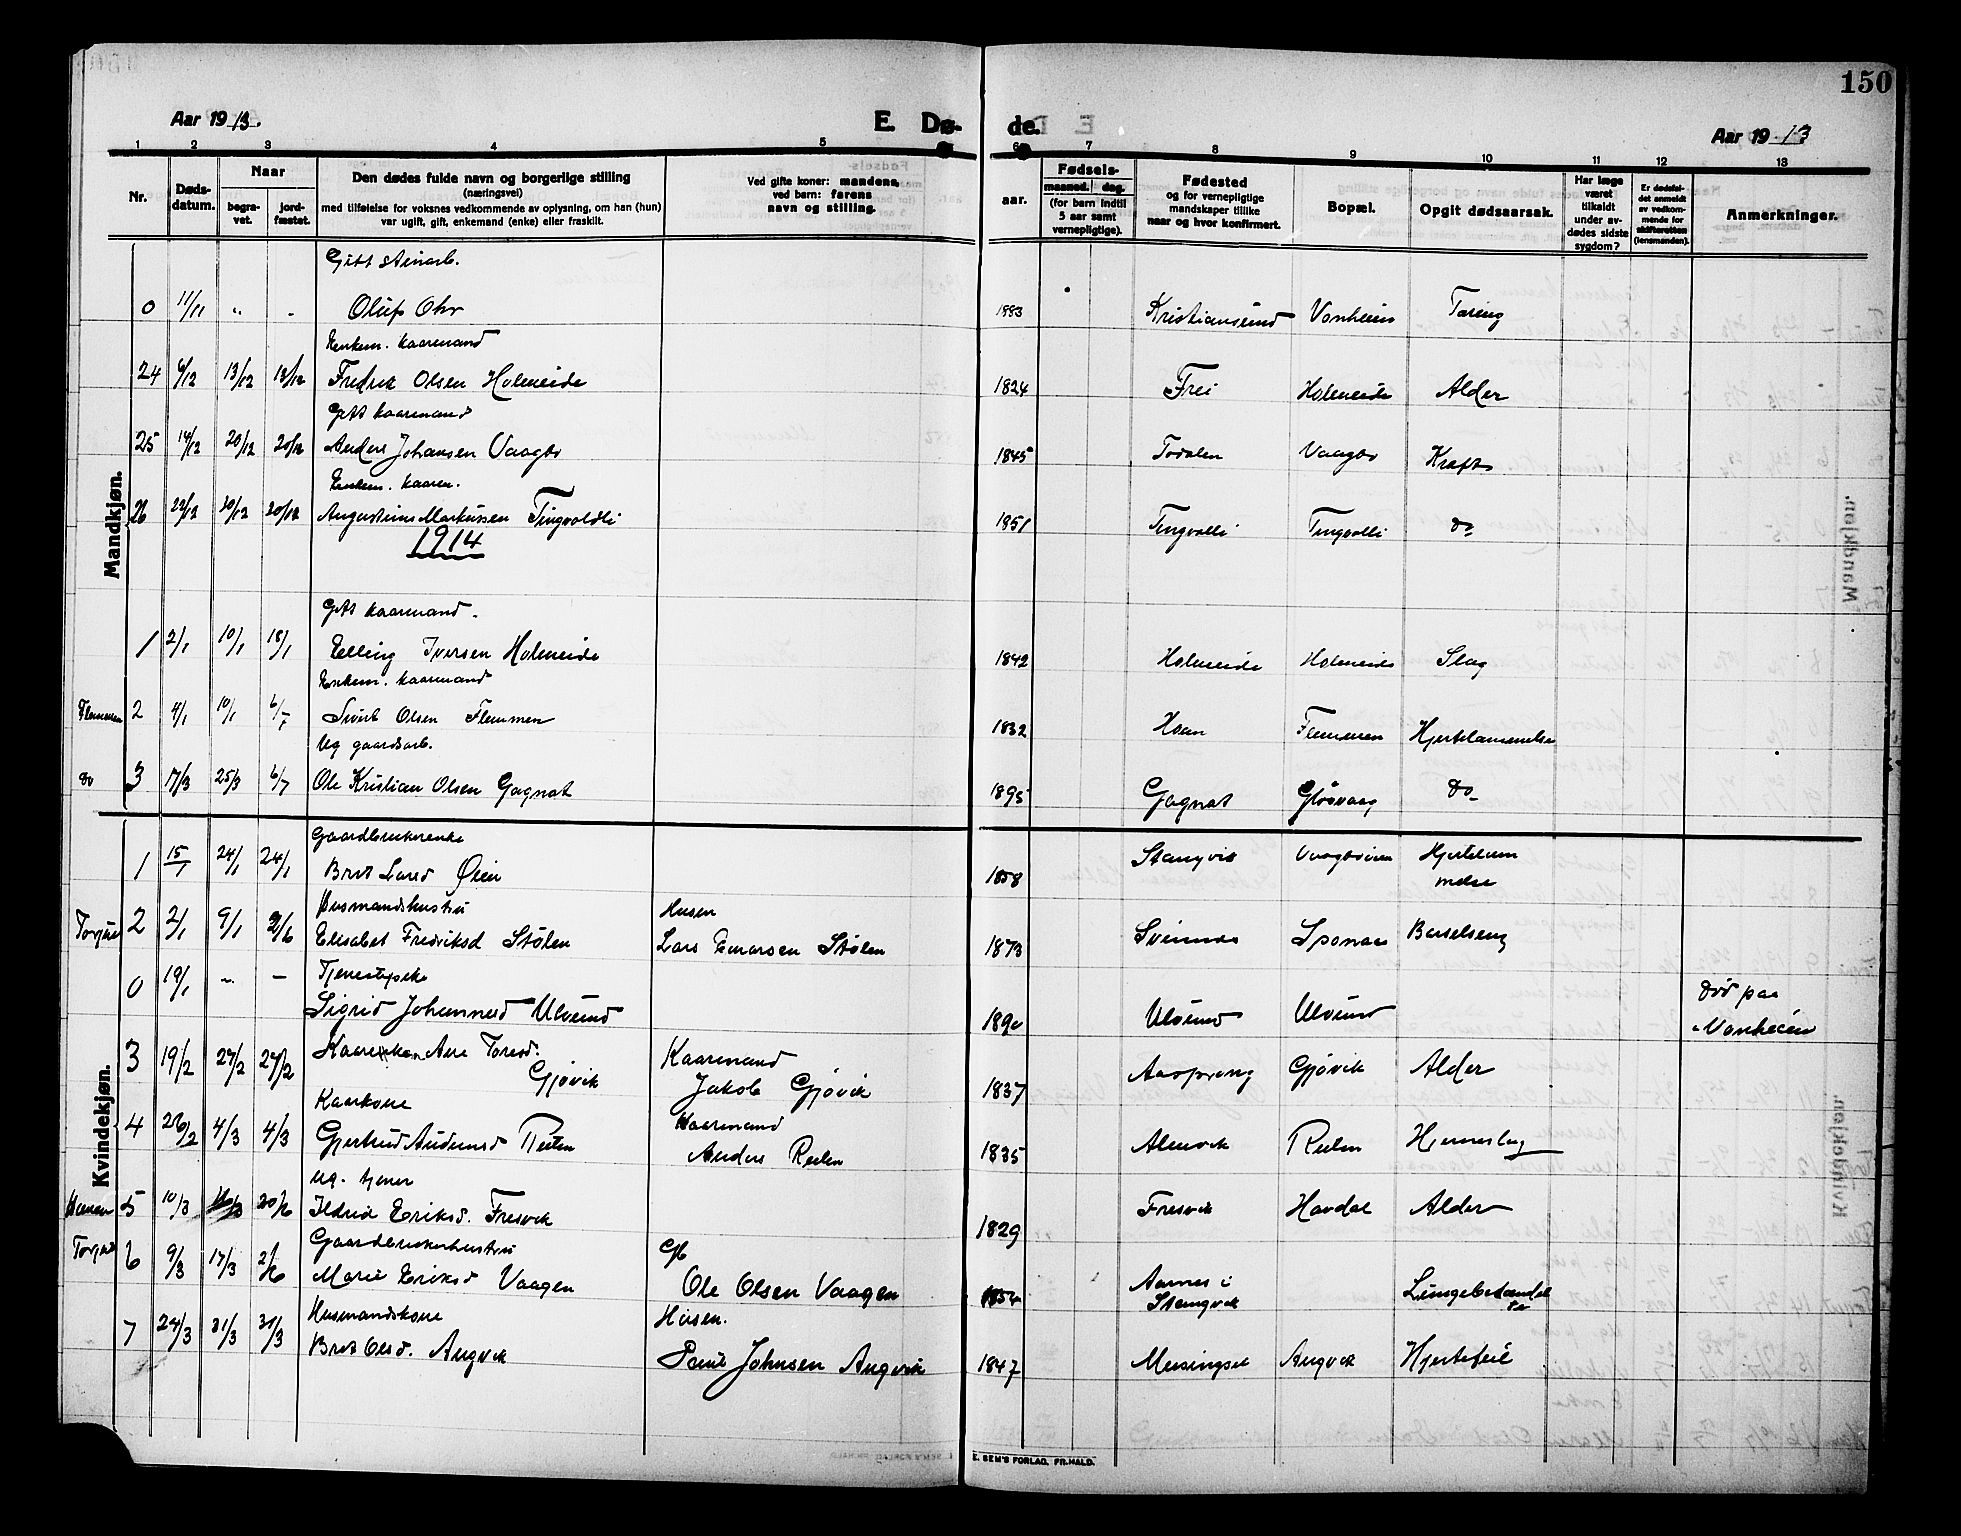 150
Aar 1913.
E. Dø-
de.
Aar 1913
1 2 3 4 5 6 7 8 9 10 11 12 13
Nr.
Døds-
datum.
Naar
begra-
vet.
jord-
fæstet.
Den dødes fulde navn og borgerlige stilling
(næringsvei)
med tilføielse for voksnes vedkommende av oplysning, om han (hun)
var ugift, gift, enkemand (enke) eller fraskilt.
Ved gifte koner: mandens,
ved børn: farens
navn og stilling.
aar.
Fødsels-
maaned. dag.
(for barn indtil
5 aar samt
vernepligtige).
Fødested
og for vernepligtige
mandskaper tillike
naar og hvor konfirmert.
Bopæl.
Opgit dødsaarsak.
Har læge
været
tilkaldt
under av-
dødes sidste
sygdom?
Er dødsfal-
det anmeldt
av vedkom-
mende for
skifteretten
(lensmanden).
Anmerkninger.
Mandkjøn.
Gift stenarb.
0 11/11 " - Oluf Ohr 1883 Kristiansund Vonheim Tæring
Enkem. kaarmand
24 6/12 13/12 13/12 Fredrik Olsen Holmeide 1824 Frei Holmeide Alder
Gift kaarmand
25 14/12 20/12 20/12 Anders Johansen Vaagbø 1845 Todalen Vaagbø Kræft
Enkem. kaarm.
26 20/12 20/12 Augustinus Markussen Tingvoldli 1851 Tingvolli Tingvolli do
1914
Gift kaarmand.
1 2/1 10/1 18/1 Elling Iversen Holmeide 1842 Holmeide Holmeide Slag
Enkem. kaarmand
Flemmen 2 4/1 10/1 6/7 Sivert Olsen Flemmen 1832 Hoem Flemmen Hjertelammelse
Ug gaardsarb.
do 3 17/3 25/3 6/7 Ole Kristian Olsen Gagnat 1895 Gagnat Gløsvaag do
Kvindekjøn.
Gaardbrukerenke
1 15/1 24/1 24/1 Brit Larsd Øien 1858 Stangvik Hjertelam
melse
Husmandshustru Husm
2 2/1 9/1 Elisabet Fredriksd Stølen Lars Einarsen Stølen 1873 Barselseng
Tjenestepike
0 19/1 - - Sigrid Johannesd Ulvund 1890 Ulvund Ulvund Død paa
Vonheim
3 19/2 27/2 27/2 Ane Toresd. Kaarmand
Gjøvik Jakob Gjøvik 1837 Gjøvik Alder
Kaarkone Kaarmand
4 26/2 4/3 4/3 Gjertrud Andersd Reiten Anders Reiten 1835 Almvik Reiten Hjerneslag
ug. tjener
5 10/3 20/6 Ildrid Eriksd. Fresvik 1829 Fresvik Havdal Alder
Gaardbrukerhustru Gb
6 9/3 17/3 2/6 Marie Eriksd Vaagen Ole Olsen Vaagen 1854 Aarnes i
Stangvik Lungebetændel
se
Husmandskone Husm.
7 24/3 31/3 31/3 Brit Olsd. Angvik Poul Johnsen Angvik 1847 Meisingset Angvik Hjertefeil
E. SEM'S FORLAG, FR.HALD.